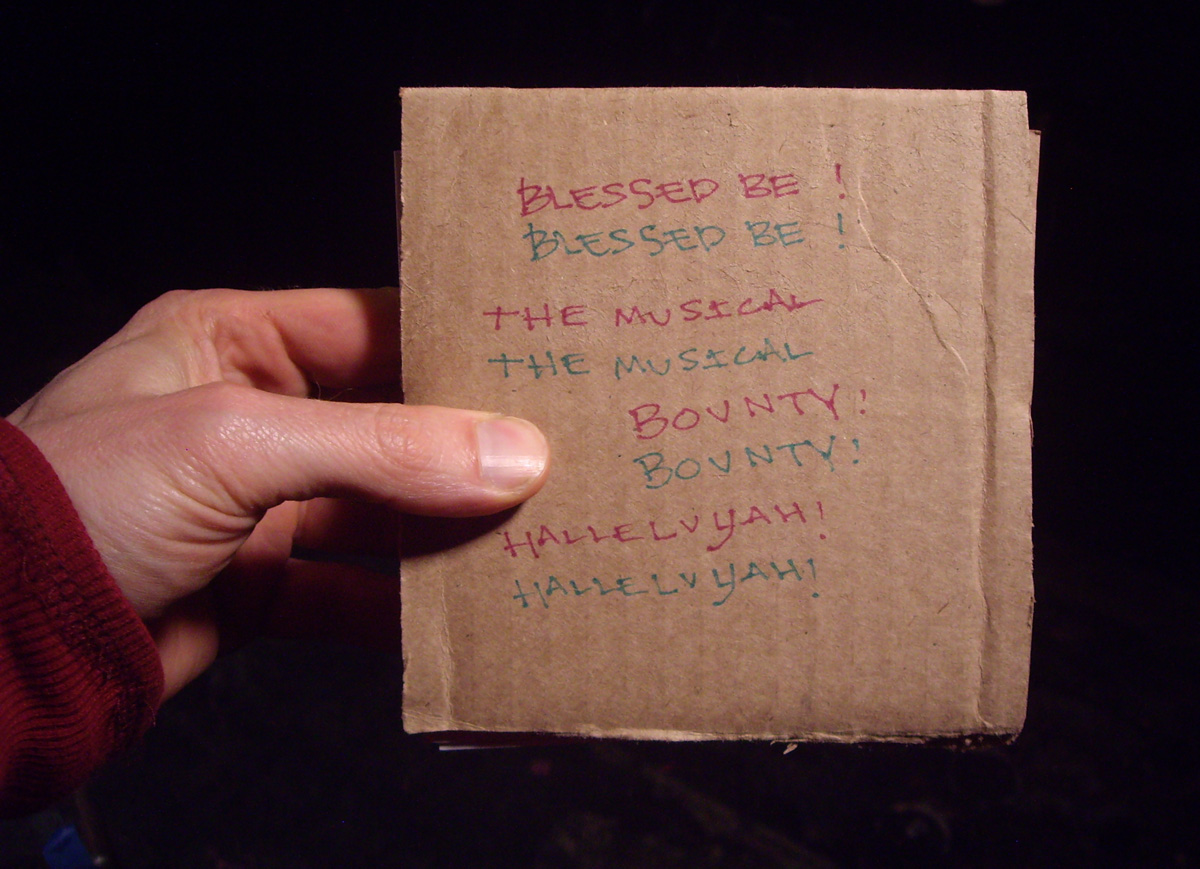 BLESSED BE !
BLESSED BE !
THE MUSICAL
THE MUSICAL
BOUNTY!
BOUNTY!
HALLELUYAH!
HALLELUYAH!